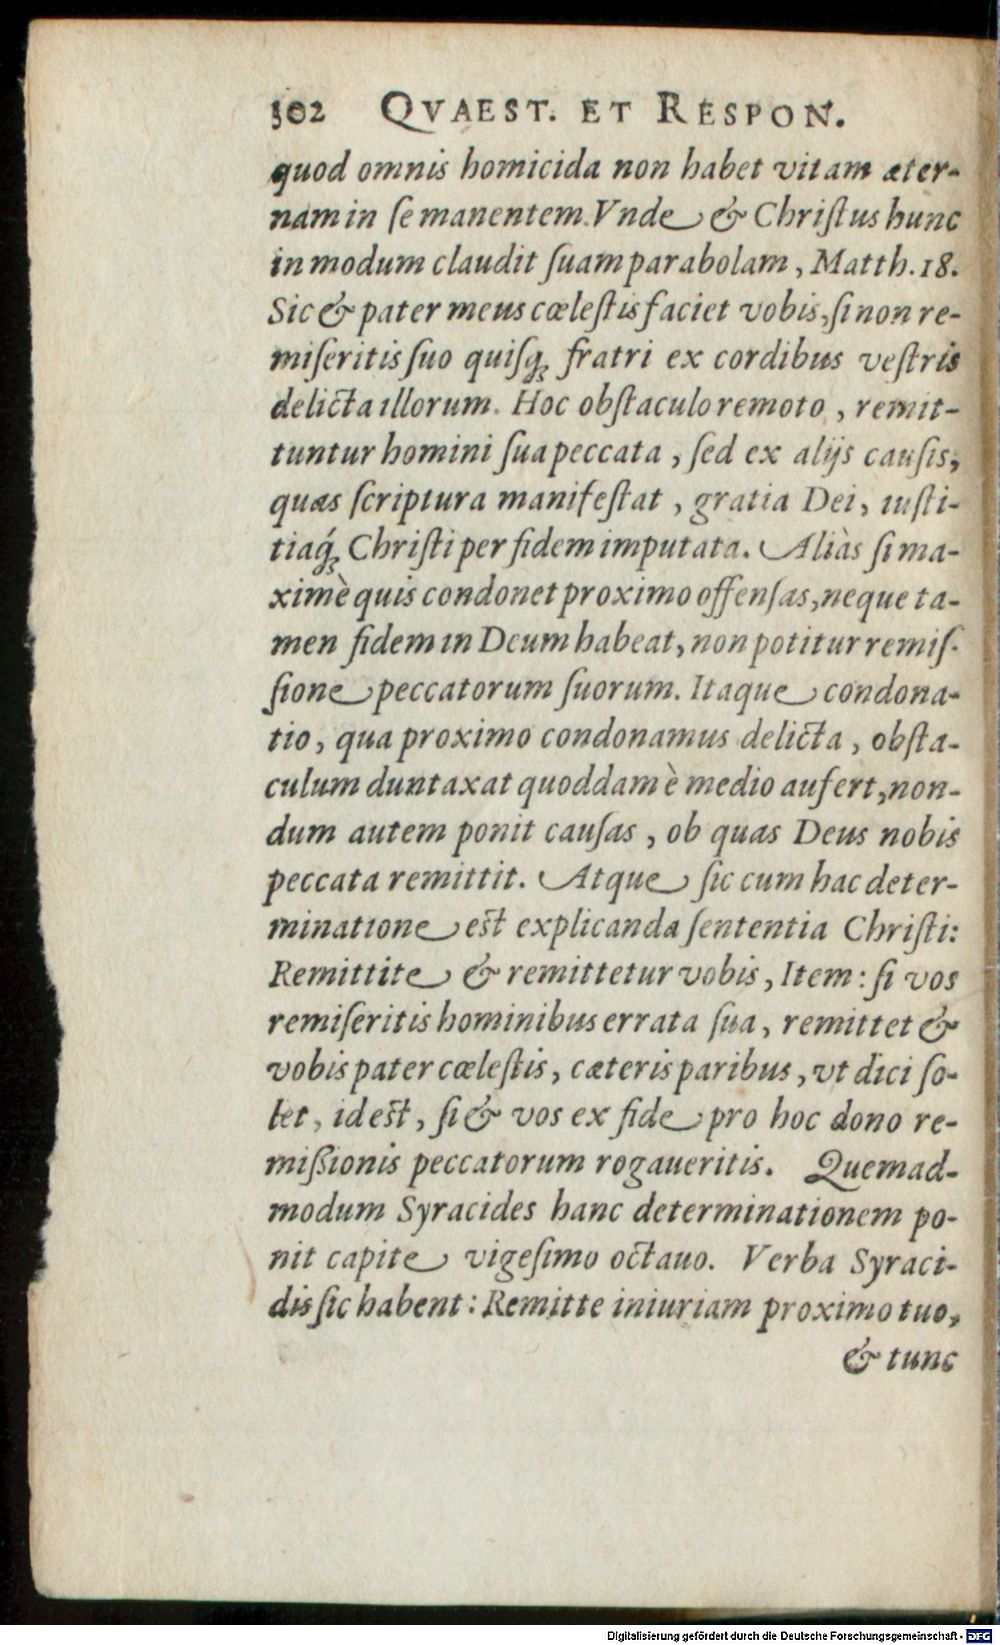 302 QVAEST. ET RESPON.
quod omnis homicida non habet vitam æter-
nam in ſe manentem. Vnde & Chriſtus hunc
in modum claudit ſuam parabolam, Matth. 18.
Sic & pater meus cœleſtis faciet vobis, ſi non re-
miſeritis ſuo quiſq; fratri ex cordibus veſtris
delicta illorum. Hoc obſtaculo remoto, remit-
tuntur homini ſua peccata, ſed ex alijs cauſis,
quas ſcriptura manifeſtat, gratia Dei, iuſti-
tiaq́; Chriſti per fidem imputata. Aliàs ſi ma-
ximè quis condonet proximo offenſas, neque ta-
men fidem in Deum habeat, non potitur remiſ-
ſione peccatorum ſuorum. Itaque condona-
tio, qua proximo condonamus delicta, obſta-
culum duntaxat quoddam è medio aufert, non-
dum autem ponit cauſas, ob quas Deus nobis
peccata remittit. Atque ſic cum hac deter-
minatione eſt explicanda ſententia Chriſti:
Remittite & remittetur vobis, Item: ſi vos
remiſeritis hominibus errata ſua, remittet &
vobis pater cœleſtis, cæteris paribus, vt dici ſo-
let, id eſt, ſi & vos ex fide pro hoc dono re-
miſsionis peccatorum rogaueritis. Quemad-
modum Syracides hanc determinationem po-
nit capite vigeſimo octauo. Verba Syraci-
dis ſic habent: Remitte iniuriam proximo tuo,
& tunc
Digitalisierung gefördert durch die Deutsche Forschungsgemeinschaft - DFG